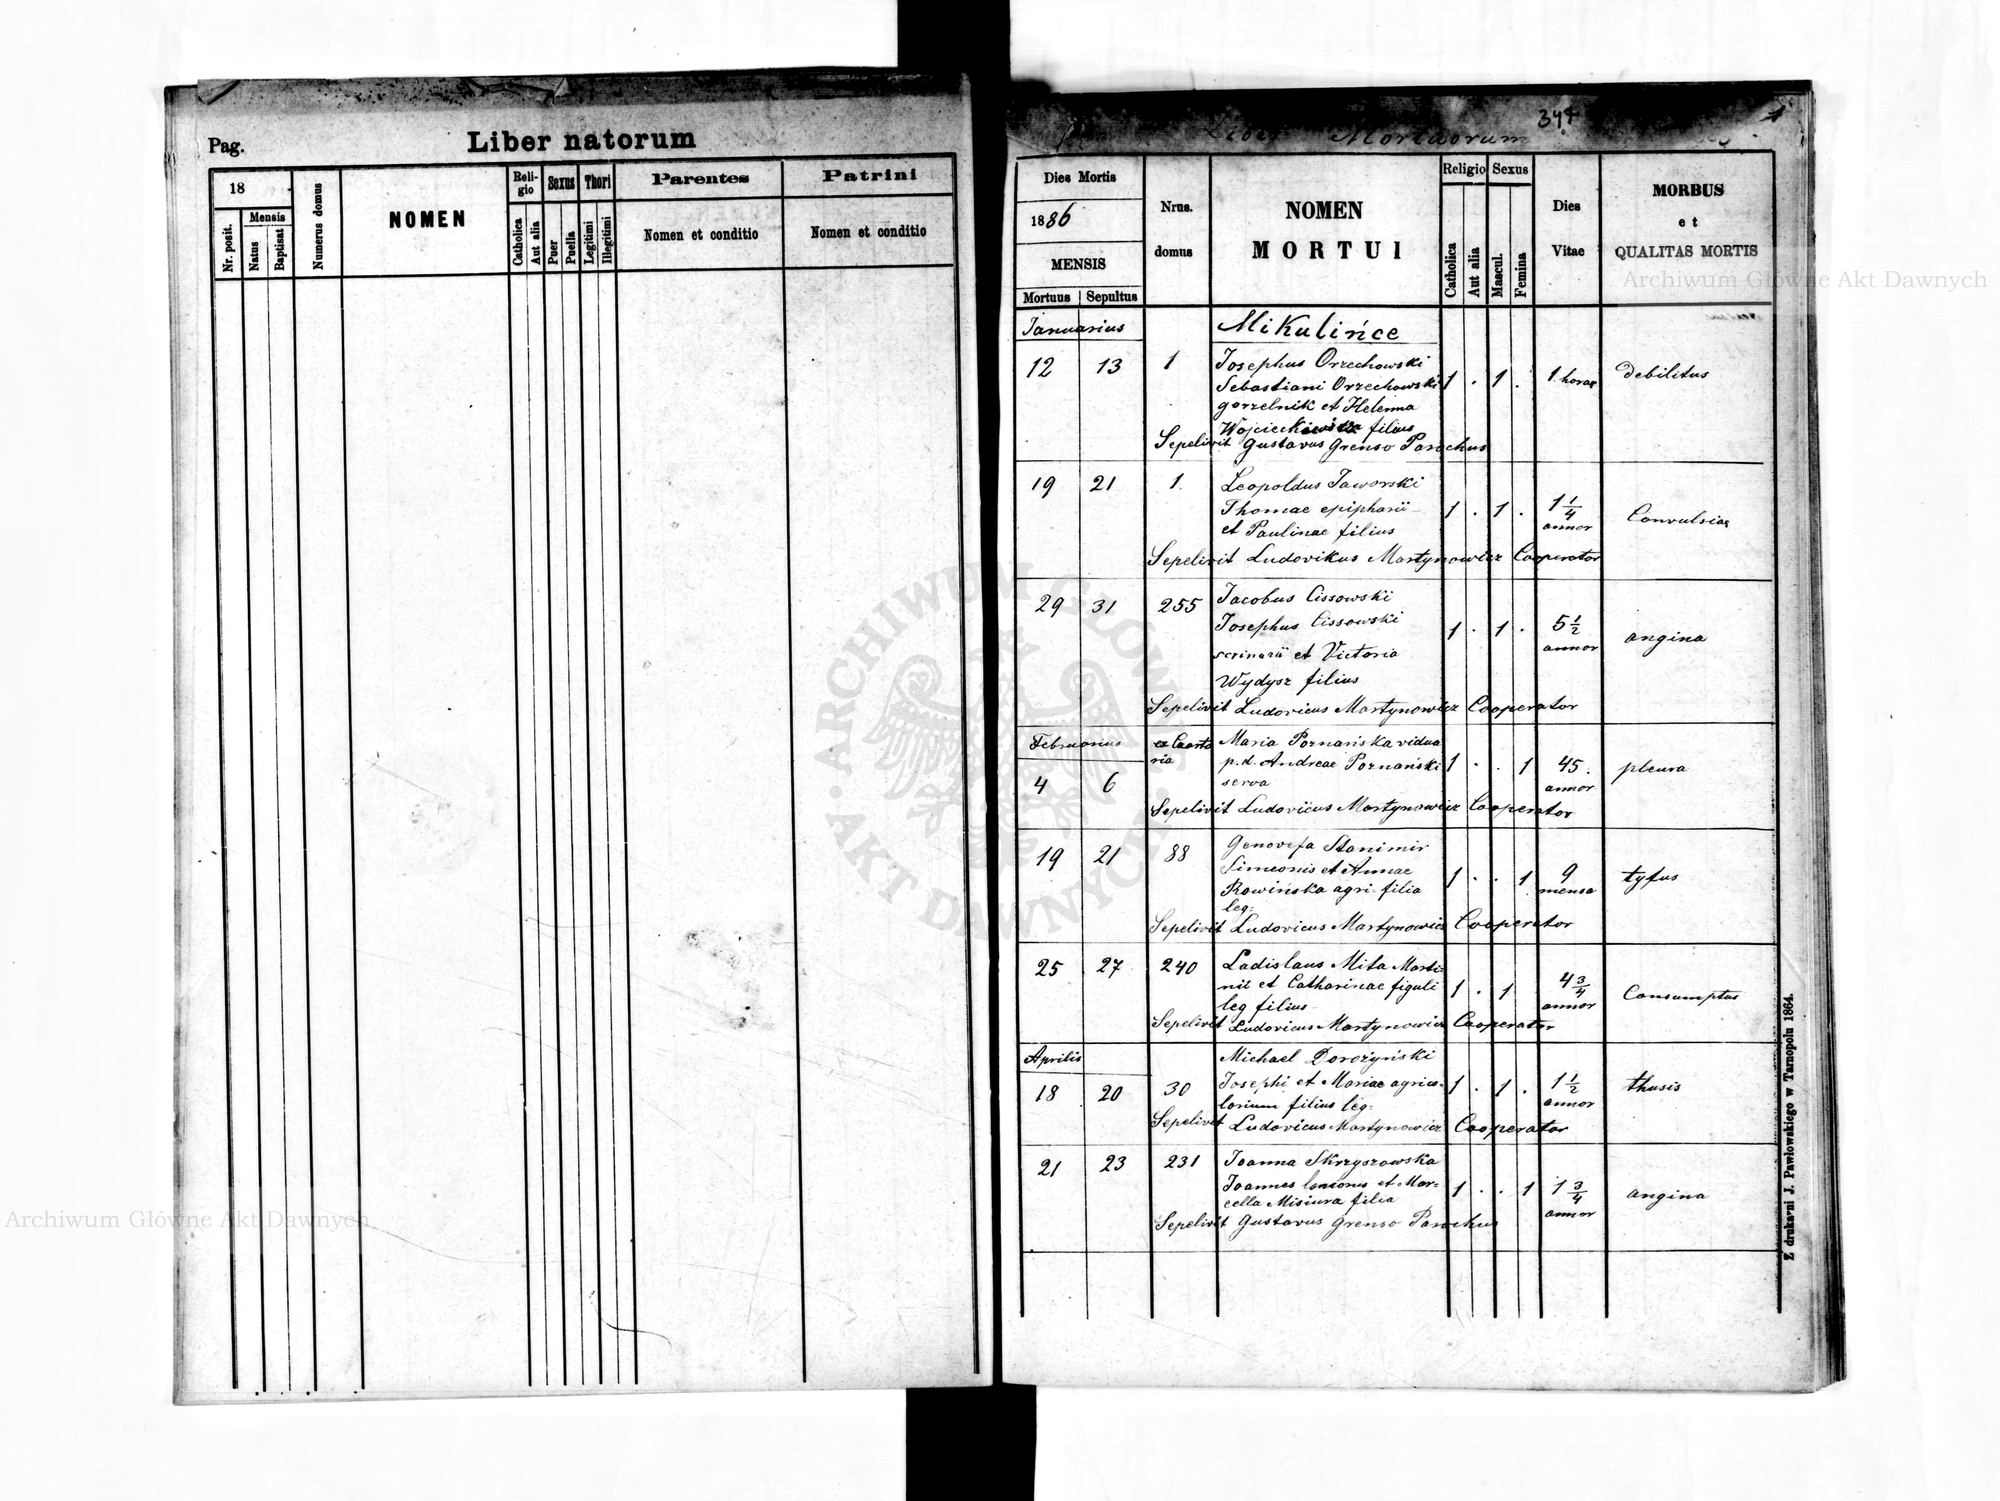 Pag.
Liber natorum
18
Nr. posit.
Mensis
Natus
Baptisat
Numerus domus
NOMEN
Reli-
gio
Catholica
Aut alia
Sexus
Puer
Puella
Thori
Legitimi
Illegitimi
Parentes
Nomen et conditio
Patrini
Nomen et conditio
Liber Mortuorum
1
Dies Mortis
1886
MENSIS
Mortuus
Sepultus
Nrus.
domus
NOMEN
MORTUI
Religio
Catholica
Aut alia
Sexus
Mascul.
Femina
Dies
Vitae
MORBUS
et
QUALITAS MORTIS
Januarius
Mikulińce
12 13 1 Josephus Orzechowski
Sebastiani Orzechowski 1 . 1 . 1 horae debilitus
gorzelnik et Helenna
filius
Sepelivit Gustavus Grenso Parochus
19 21 1. Leopoldus Jaworski
Thomae epipharii 1 . 1 . 1 1/4 annor Convulsiae
et Paulinae filius
Sepelivit Ludovikus Martynowicz Cooperator
29 31 255 Jacobus Cissowskii
Josephus Cissowski 1 . 1 . 5 1/2 annor angina
scrinarii et Victoria
Wydysz filius
Sepelivit Ludovicus Martynowicz Cooperator
Februarius
Maria Poznańska vidua
p.d. Andreae Poznański 1 . . 1 45. annor pleura
serva
4 6
Sepelivit Ludovicus Martynowicz Cooperator
19 21 88 Genovefa Stanimir
Simeonis et Annae 1 . . 1 9 mensa tyfus
Rowińska agri. filia
leg:
Sepelivit Ludovicus Martynowicz Cooperator
25 27 240 Ladislaus Mita Marti-
nii et Catharinae figuli 1 . 1 4 3/4 annor Consumptus
leg filius
Sepelivit Ludovicus Martynowicz Cooperator
Aprilis
Michael Dorożyński
18 20 30 Josephi et Mariae agrico- 1 . 1 . 1 1/2 annor thusis
larium filius leg:
Sepelivit Ludovicus Martynowicz Cooperator
21 23 231 Joanna Skrzyszowska
Joannes et Mar- 1 . . 1 1 3/4 annor angina
cella Misiura filia
Sepelivit Gustavus Grenso Parochus
Z drukarni J. Pawłowskiego w Tarnopolu 1864.
Archiwum Główne Akt Dawnych
Archiwum Główne Akt Dawnych
ARCHIWUM GŁÓWNE
AKT DAWNYCH